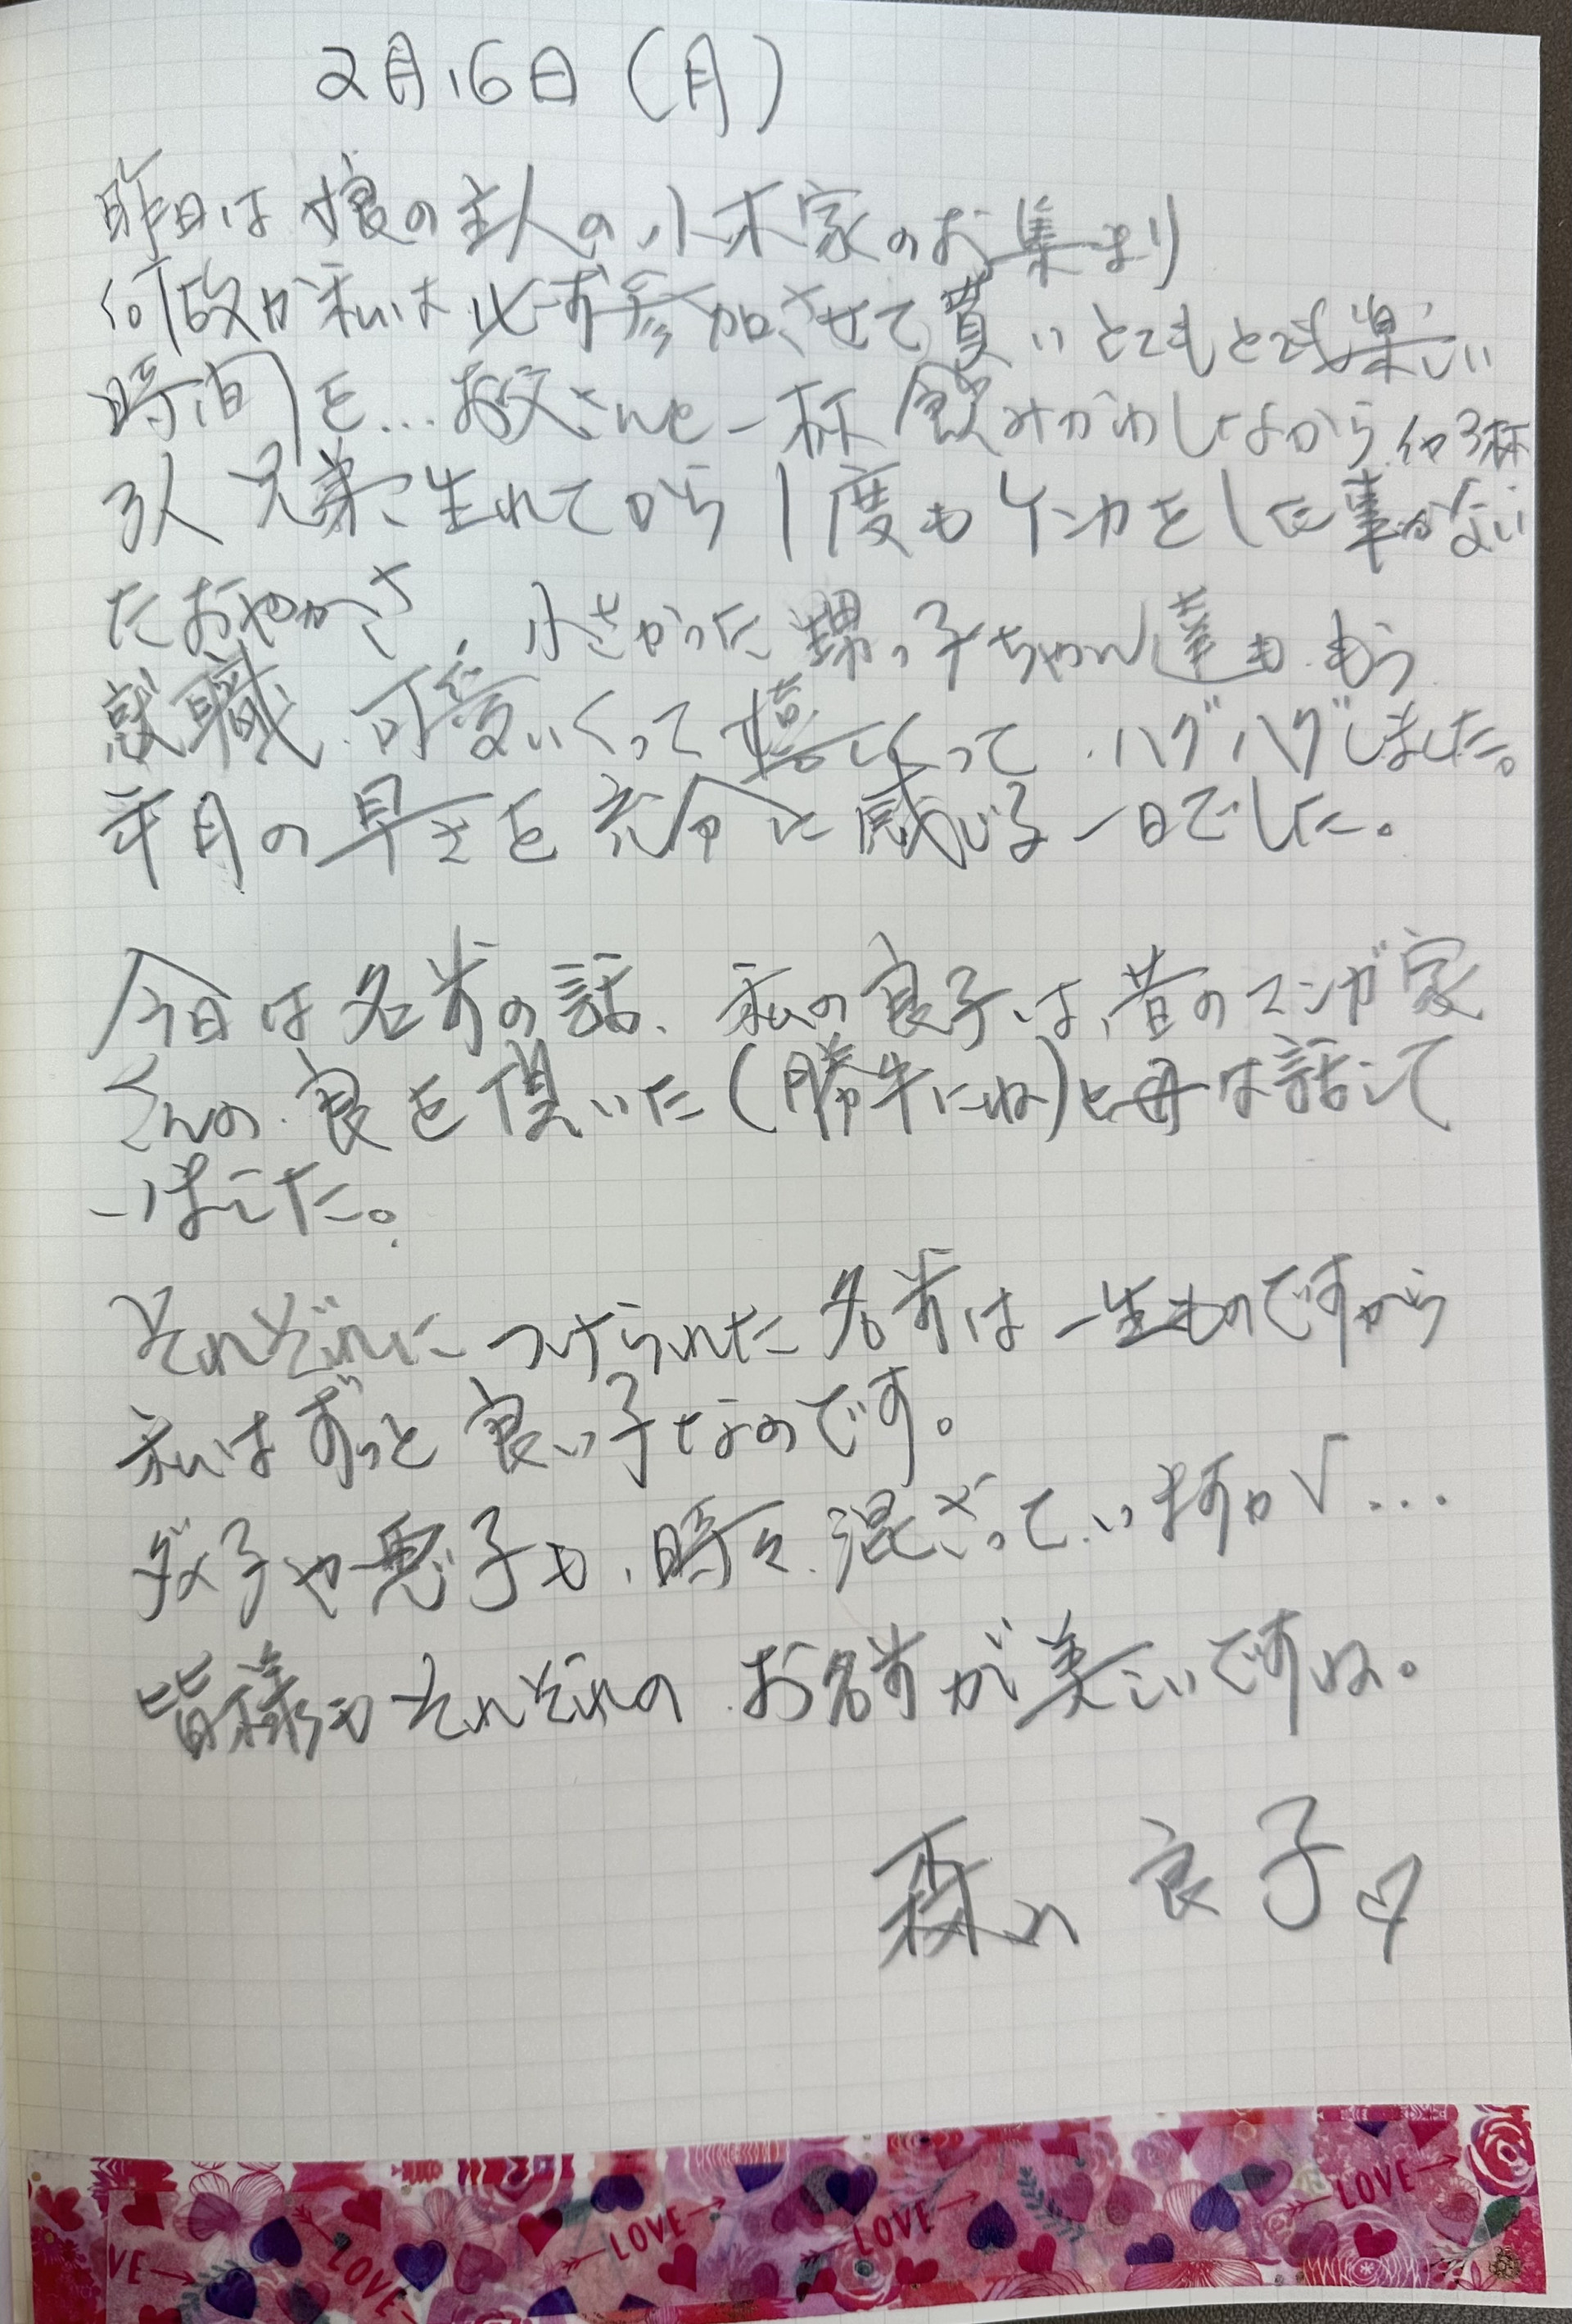 2月16日(月)
昨日は娘の主人の小木家のお集まり
何故か私は必ず参加させて貰いとてもとても楽しい
時間を…お父さんと一杯飲みかわしながら、イヤ3杯
3人兄弟、生れてから1度もケンカをした事がない
たおやかさ、小さかった甥っ子ちゃん達も、もう
就職、可愛いくって嬉しくって、ハグハグしました。
年月の早さを充分に感じる一日でした。
今日は名前の話、私の良子は、昔のマンガ家
さんの、良を頂いた(勝手にね)と母は話して
いました。
それぞれにつけられた名前は一生ものですから
私はずっと良い子なのです。
ダメ子や悪子も、時々、混ざっていますが…
皆様もそれぞれのお名前が美しいですね。
森山良子♡
VE
LOVE
LOVE
LOVE
LOVE